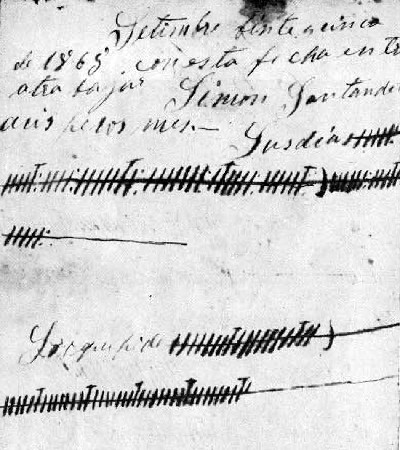 Setimbre beinte cinco
de 1868 con esta fecha entr
atra bajar Simon Santander
a seis pesos mes
Sus dias